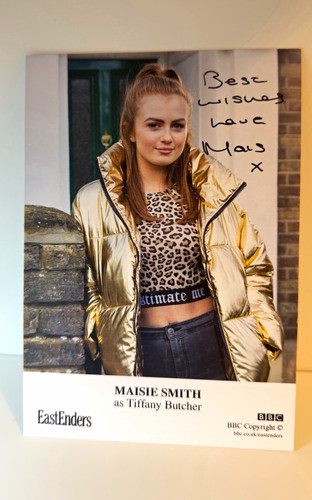 Best
wishes
Love
Mais
x
stimate me
MAISIE SMITH
as Tiffany Butcher
EastEnders
BBC
BBC Copyright ©
bbc.co.uk/eastenders